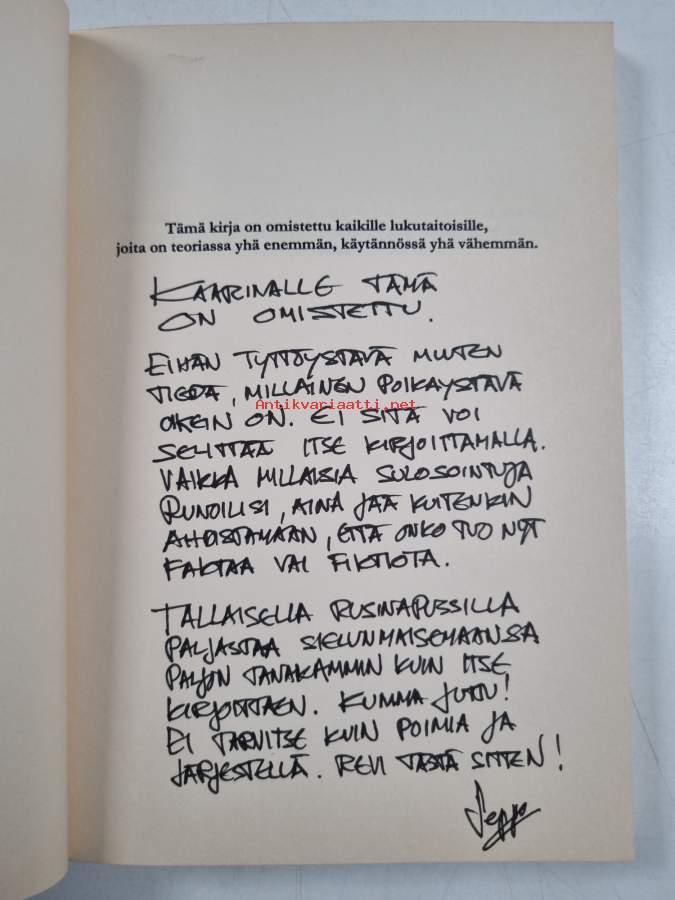 Tämä kirja on omistettu kaikille lukutaitoisille,
joita on teoriassa yhä enemmän, käytännössä yhä vähemmän.
KAARINALLE TÄMÄ
ON OMISTETTU.
EIHÄN TYTTÖYSTÄVÄ MUUTEN
TIEDÄ, MILLAINEN POIKAYSTÄVÄ
Antikvariaatti.net
OIKEIN ON. EI SITÄ VOI
SELITTÄÄ ITSE KIRJOITTAMALLA.
VAIKKA MILLAISIA SULOSOINTUJA
RUNOILISI, AINA JÄÄ KUITENKIN
AHDISTAMAAN, ETTÄ ONKO TUO NYT
FAKTAA VAI FIKTIOTA.
TÄLLAISELLA RUSINAPUSSILLA
PALJASTAA SIELUNMAISEMAANSA
PALJON TANAKAMMIN KUIN ITSE
KIRJOITTAEN. KUMMA JUTTU!
EI TARVITSE KUIN POIMIA JA
JÄRJESTELLÄ. REVI TÄSTÄ SITTEN!
Seppo